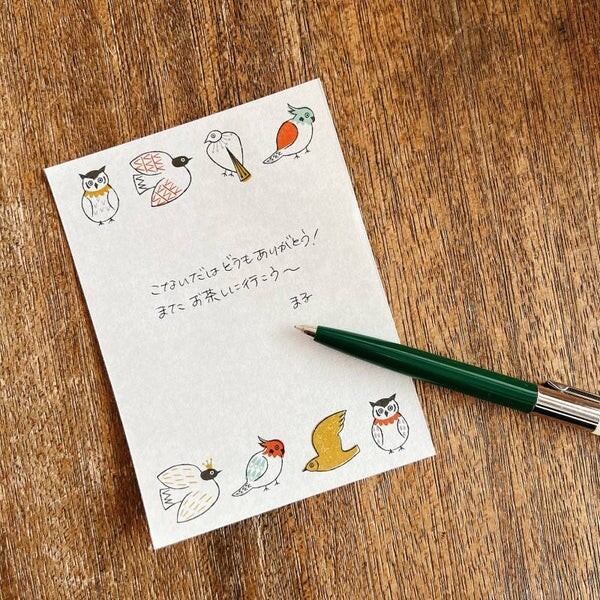 こないだはどうもありがとう!
またお茶しに行こう〜
ま子